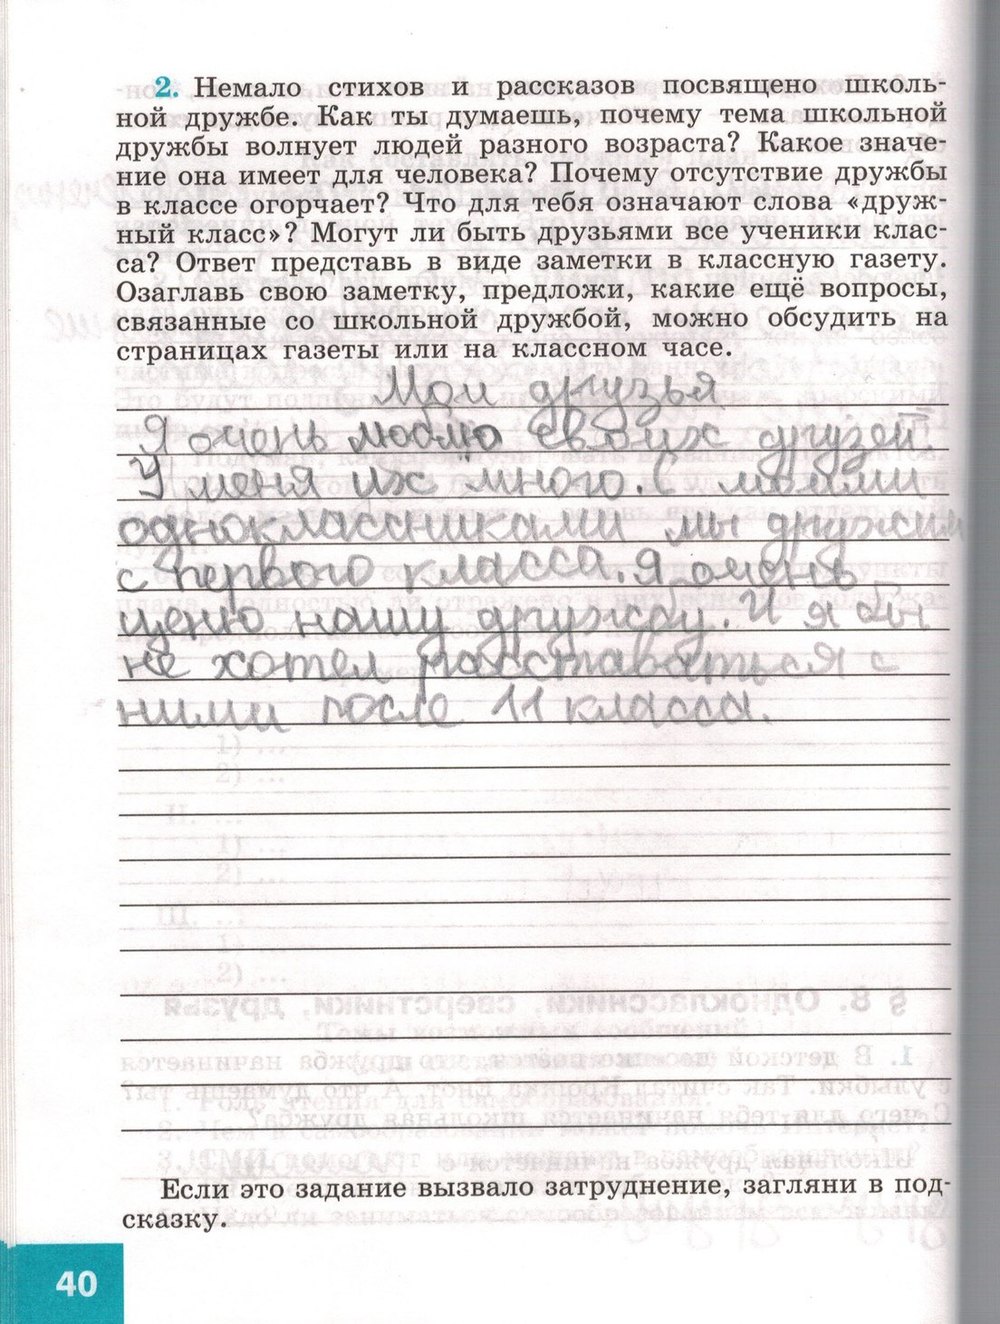 2. Немало стихов и рассказов посвящено школь-
ной дружбе. Как ты думаешь, почему тема школьной
дружбы волнует людей разного возраста? Какое значе-
ние она имеет для человека? Почему отсутствие дружбы
в классе огорчает? Что для тебя означают слова «друж-
ный класс»? Могут ли быть друзьями все ученики клас-
са? Ответ представь в виде заметки в классную газету.
Озаглавь свою заметку, предложи, какие ещё вопросы,
связанные со школьной дружбой, можно обсудить на
страницах газеты или на классном часе.
Мои друзья
Я очень люблю своих друзей.
У меня их много. С моими
одноклассниками мы дружим
с первого класса. Я очень
ценю нашу дружбу. И я бы
не хотел расставаться с
ними после 11 класса.
§ 8. Одноклассники, сверстники, друзья
Если это задание вызвало затруднение, загляни в под-
сказку.
40